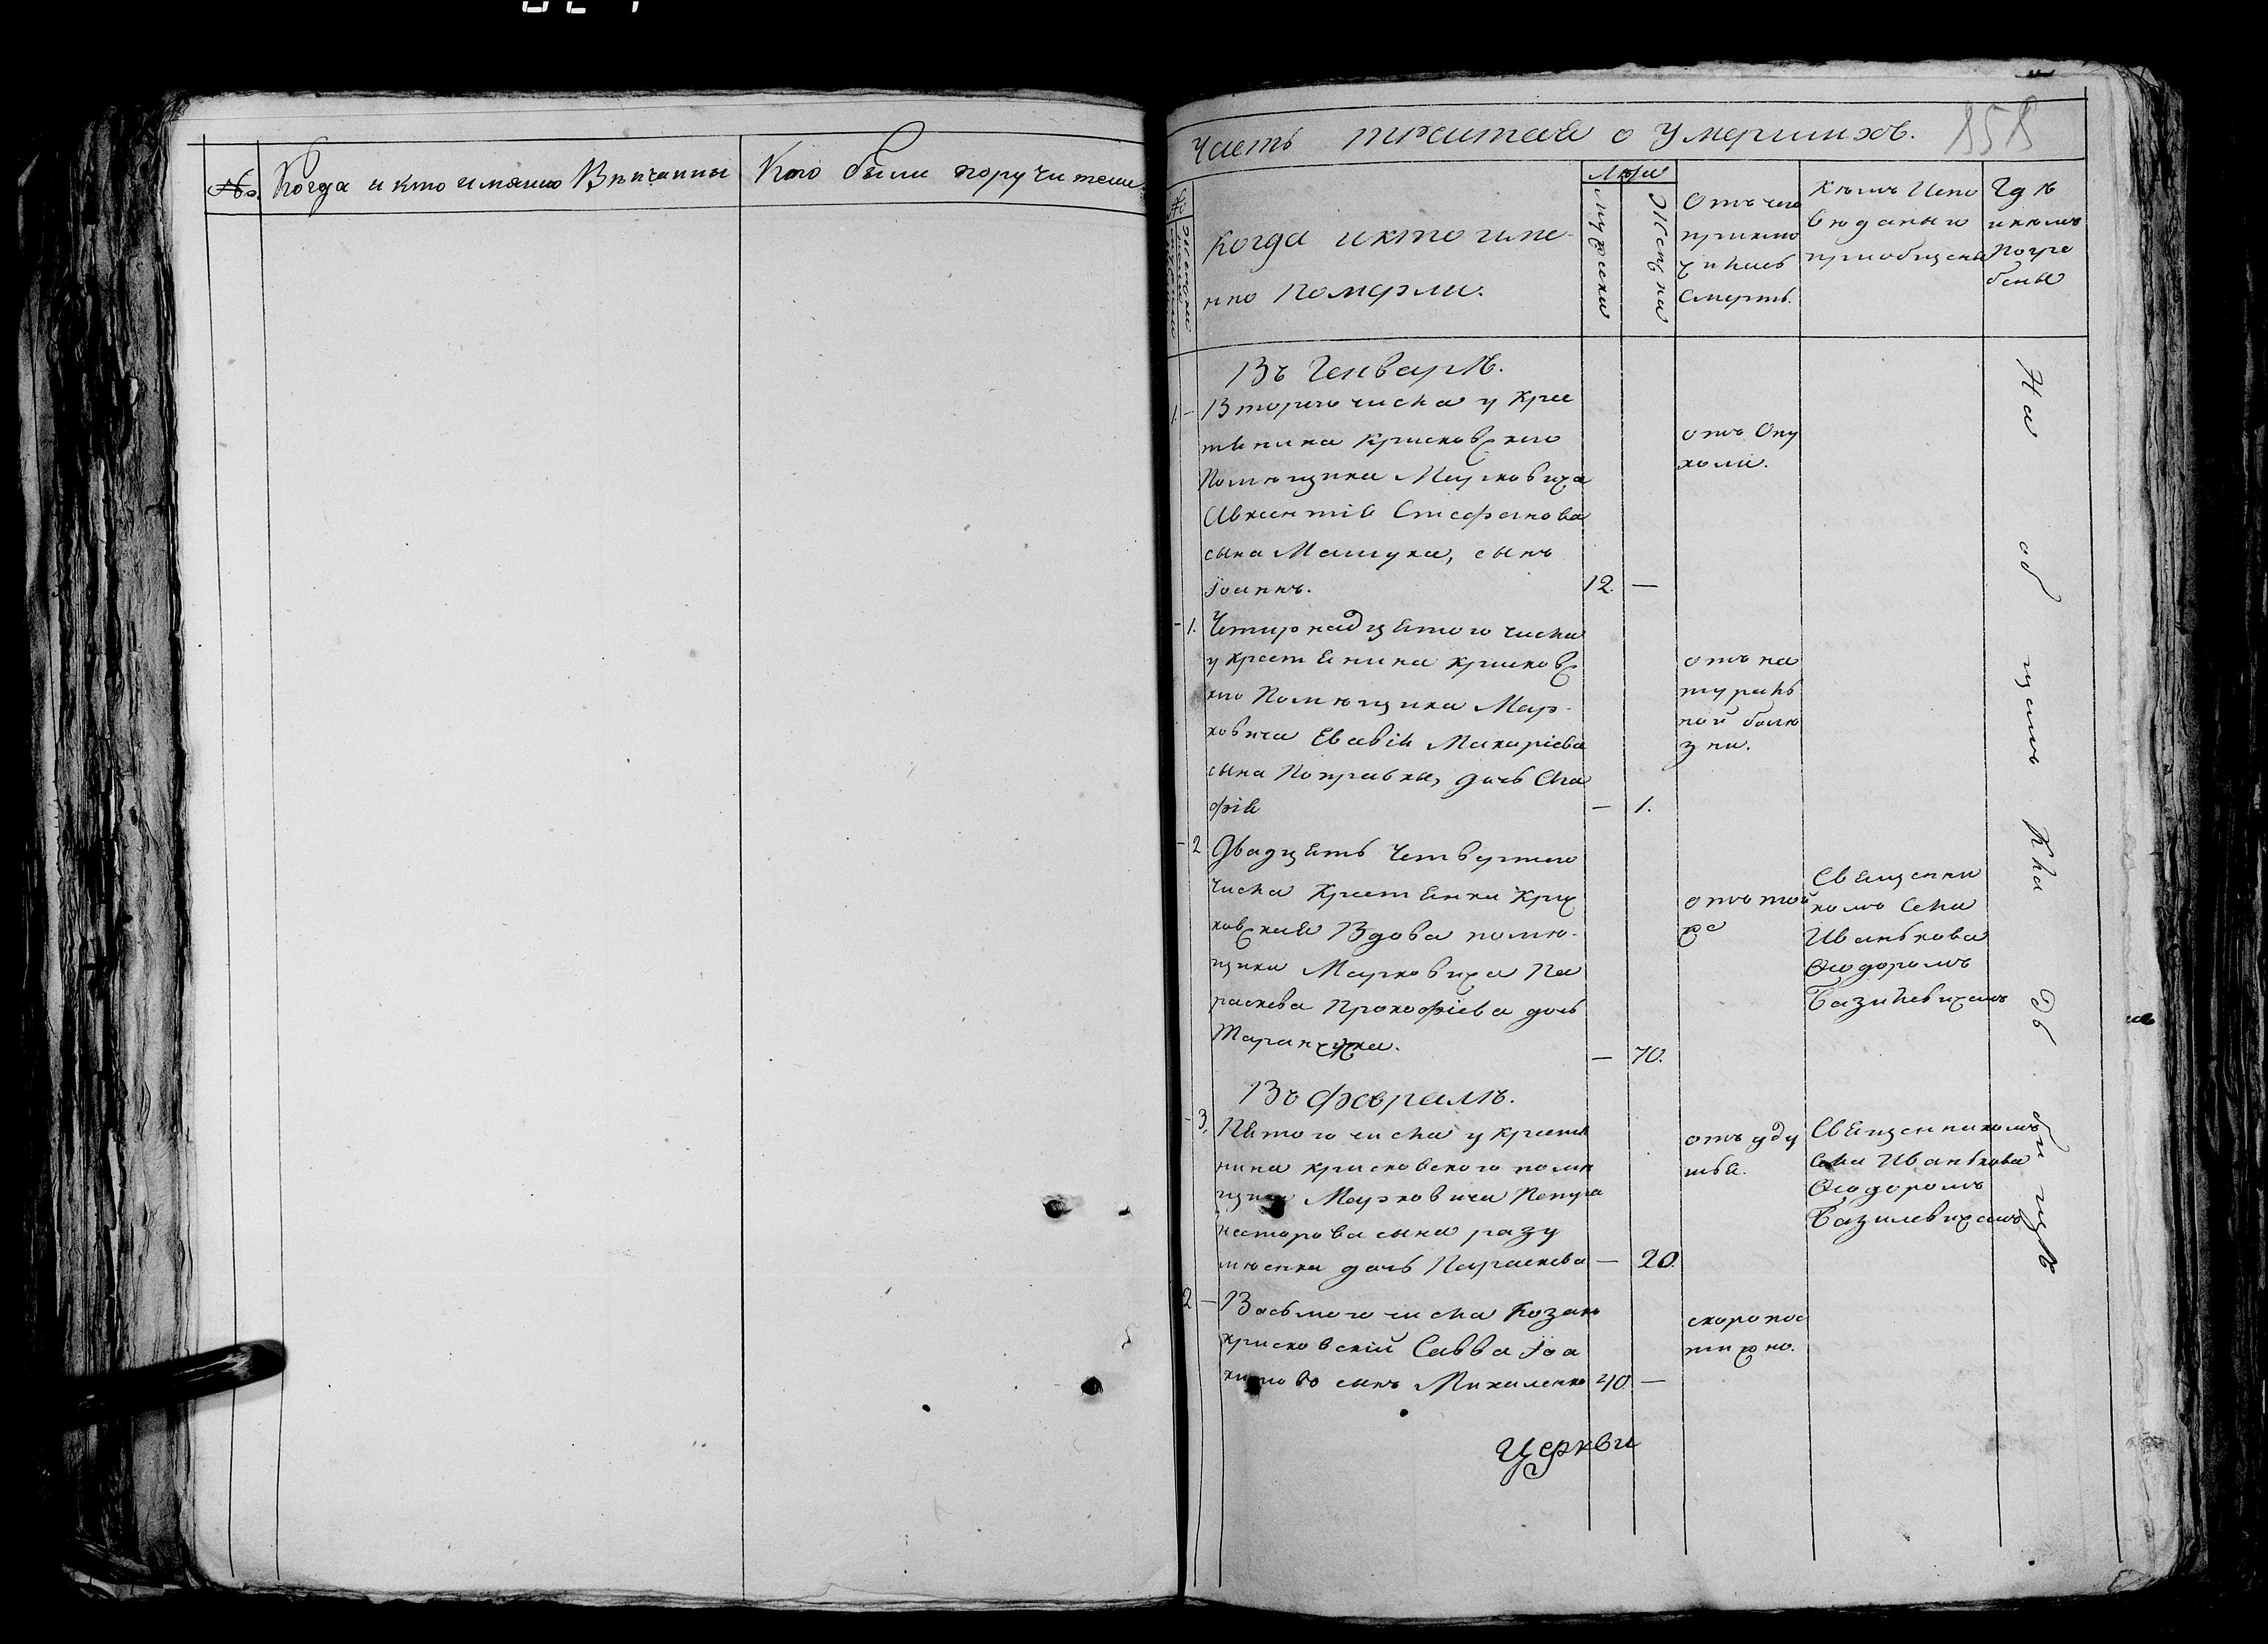 №. Когда и кто имянно Вѣнчанны
Кто были поручители
Часть третая о умершихъ.
858
№
Когда и кто име-
нно померли.
Лѣта
Мужеска
Женска
Отъ чего
приклю
чилась
Смерть.
Кѣмъ Испо
вѣданы и
приобщены
Гдѣ
и кѣмъ
погре
бены
Въ Генварѣ.
1. - Втораго числа у Крес
тянина Крисковского
Помѣщика Марковича
Авксентія Стефанова
сына Машука, сынъ
Іоаннъ. 12 —
отъ Опу
холи.
- 1. Четирнадцятого числа
у крестянина крисков
кого Помѣщика Мар-
ковича Евавія Макаріева
сына Поправки, дочь Ага
фія — 1.
отъ на
тураль
ной болѣ
зни.
- 2 Двадцять четвертого
числа Крестянка Крис
ковская Вдова помѣ-
щика Марковича Па
раскева Прокофіева дочь
— 70.
отъ той
же
Священни
комъ села
Иванкова
Ѳеодоромъ
Базилевичемъ
Въ февралѣ.
- 3. Пятого числа у крестя
нина крисковского помѣ
щика Марковича Петра
несторова сына разу
мѣенка дочь Параскева — 20.
отъ уду
шья.
Священникомъ
села Иванкова
Ѳеодоромъ
Базилевичемъ
2 — Восьмого числа козакъ
крисковскій Савва Іоа
кимовъ сынъ Михаленко 40. —
скоропос
тижно.
На общемъ Кладбищѣ
Церкви